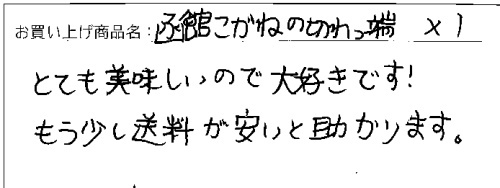 お買い上げ商品名：函館こがねの切れっ端 ×1
とても美味しいので大好きです!
もう少し送料が安いと助かります。